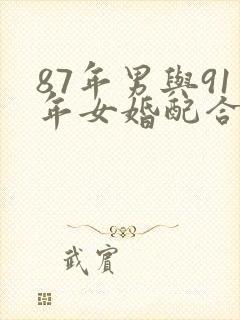 87年男與91
年女婚配合
武賓